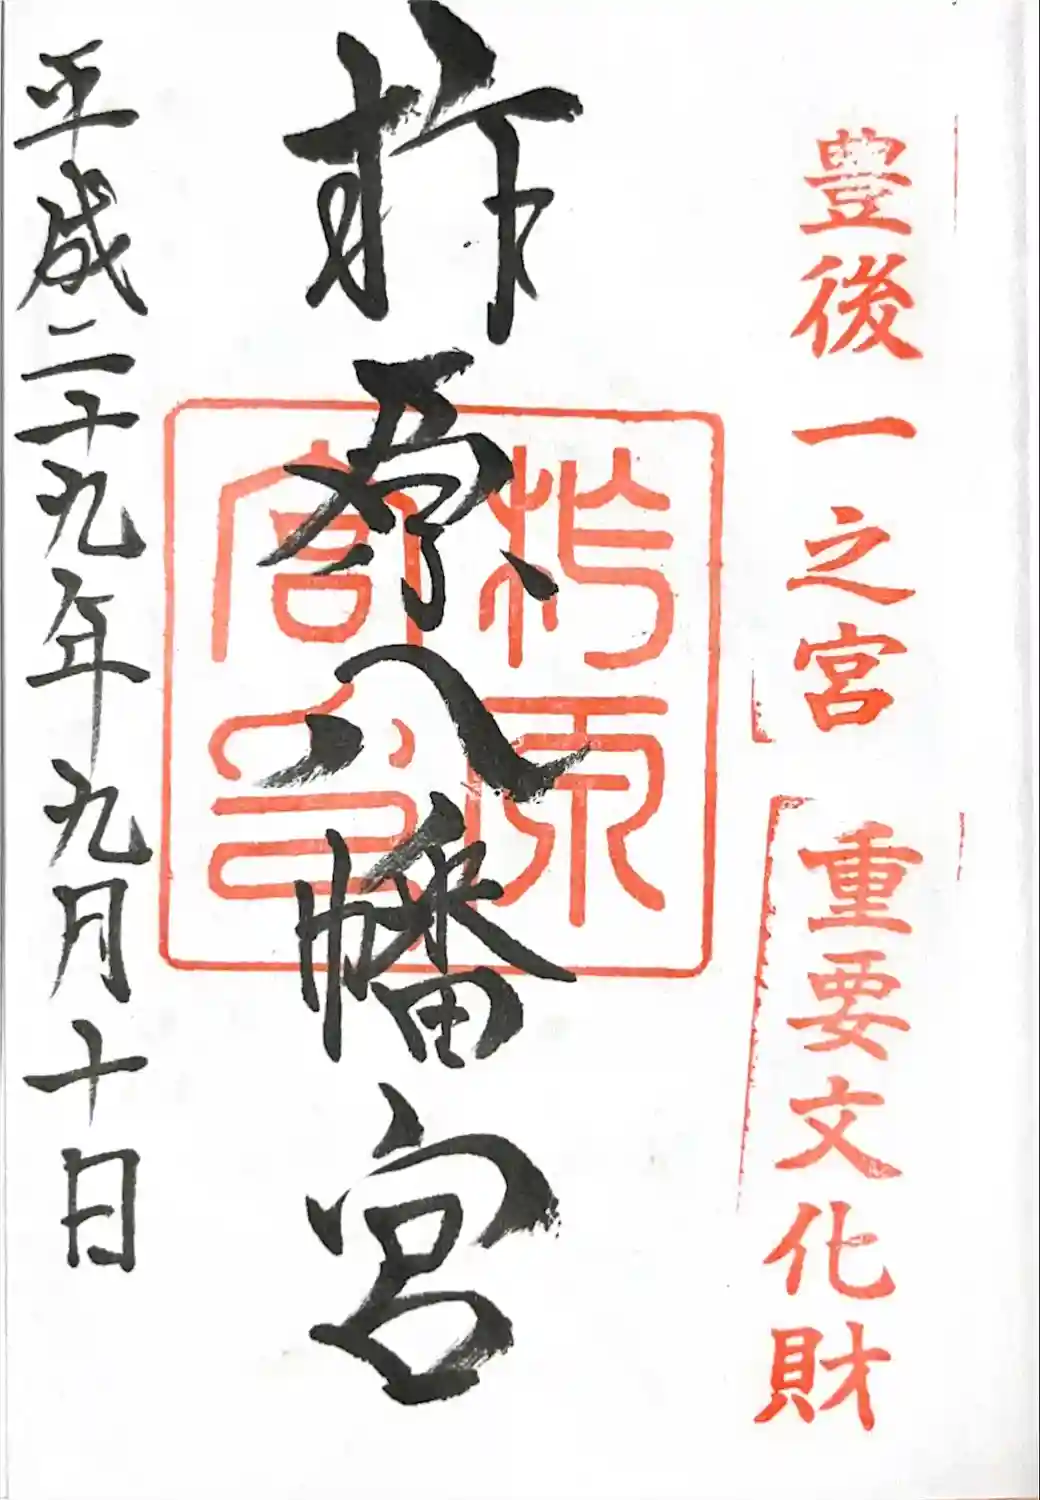 豊後一之宮 重要文化財
柞原八幡宮
柞原
宮印
平成二十九年九月十日